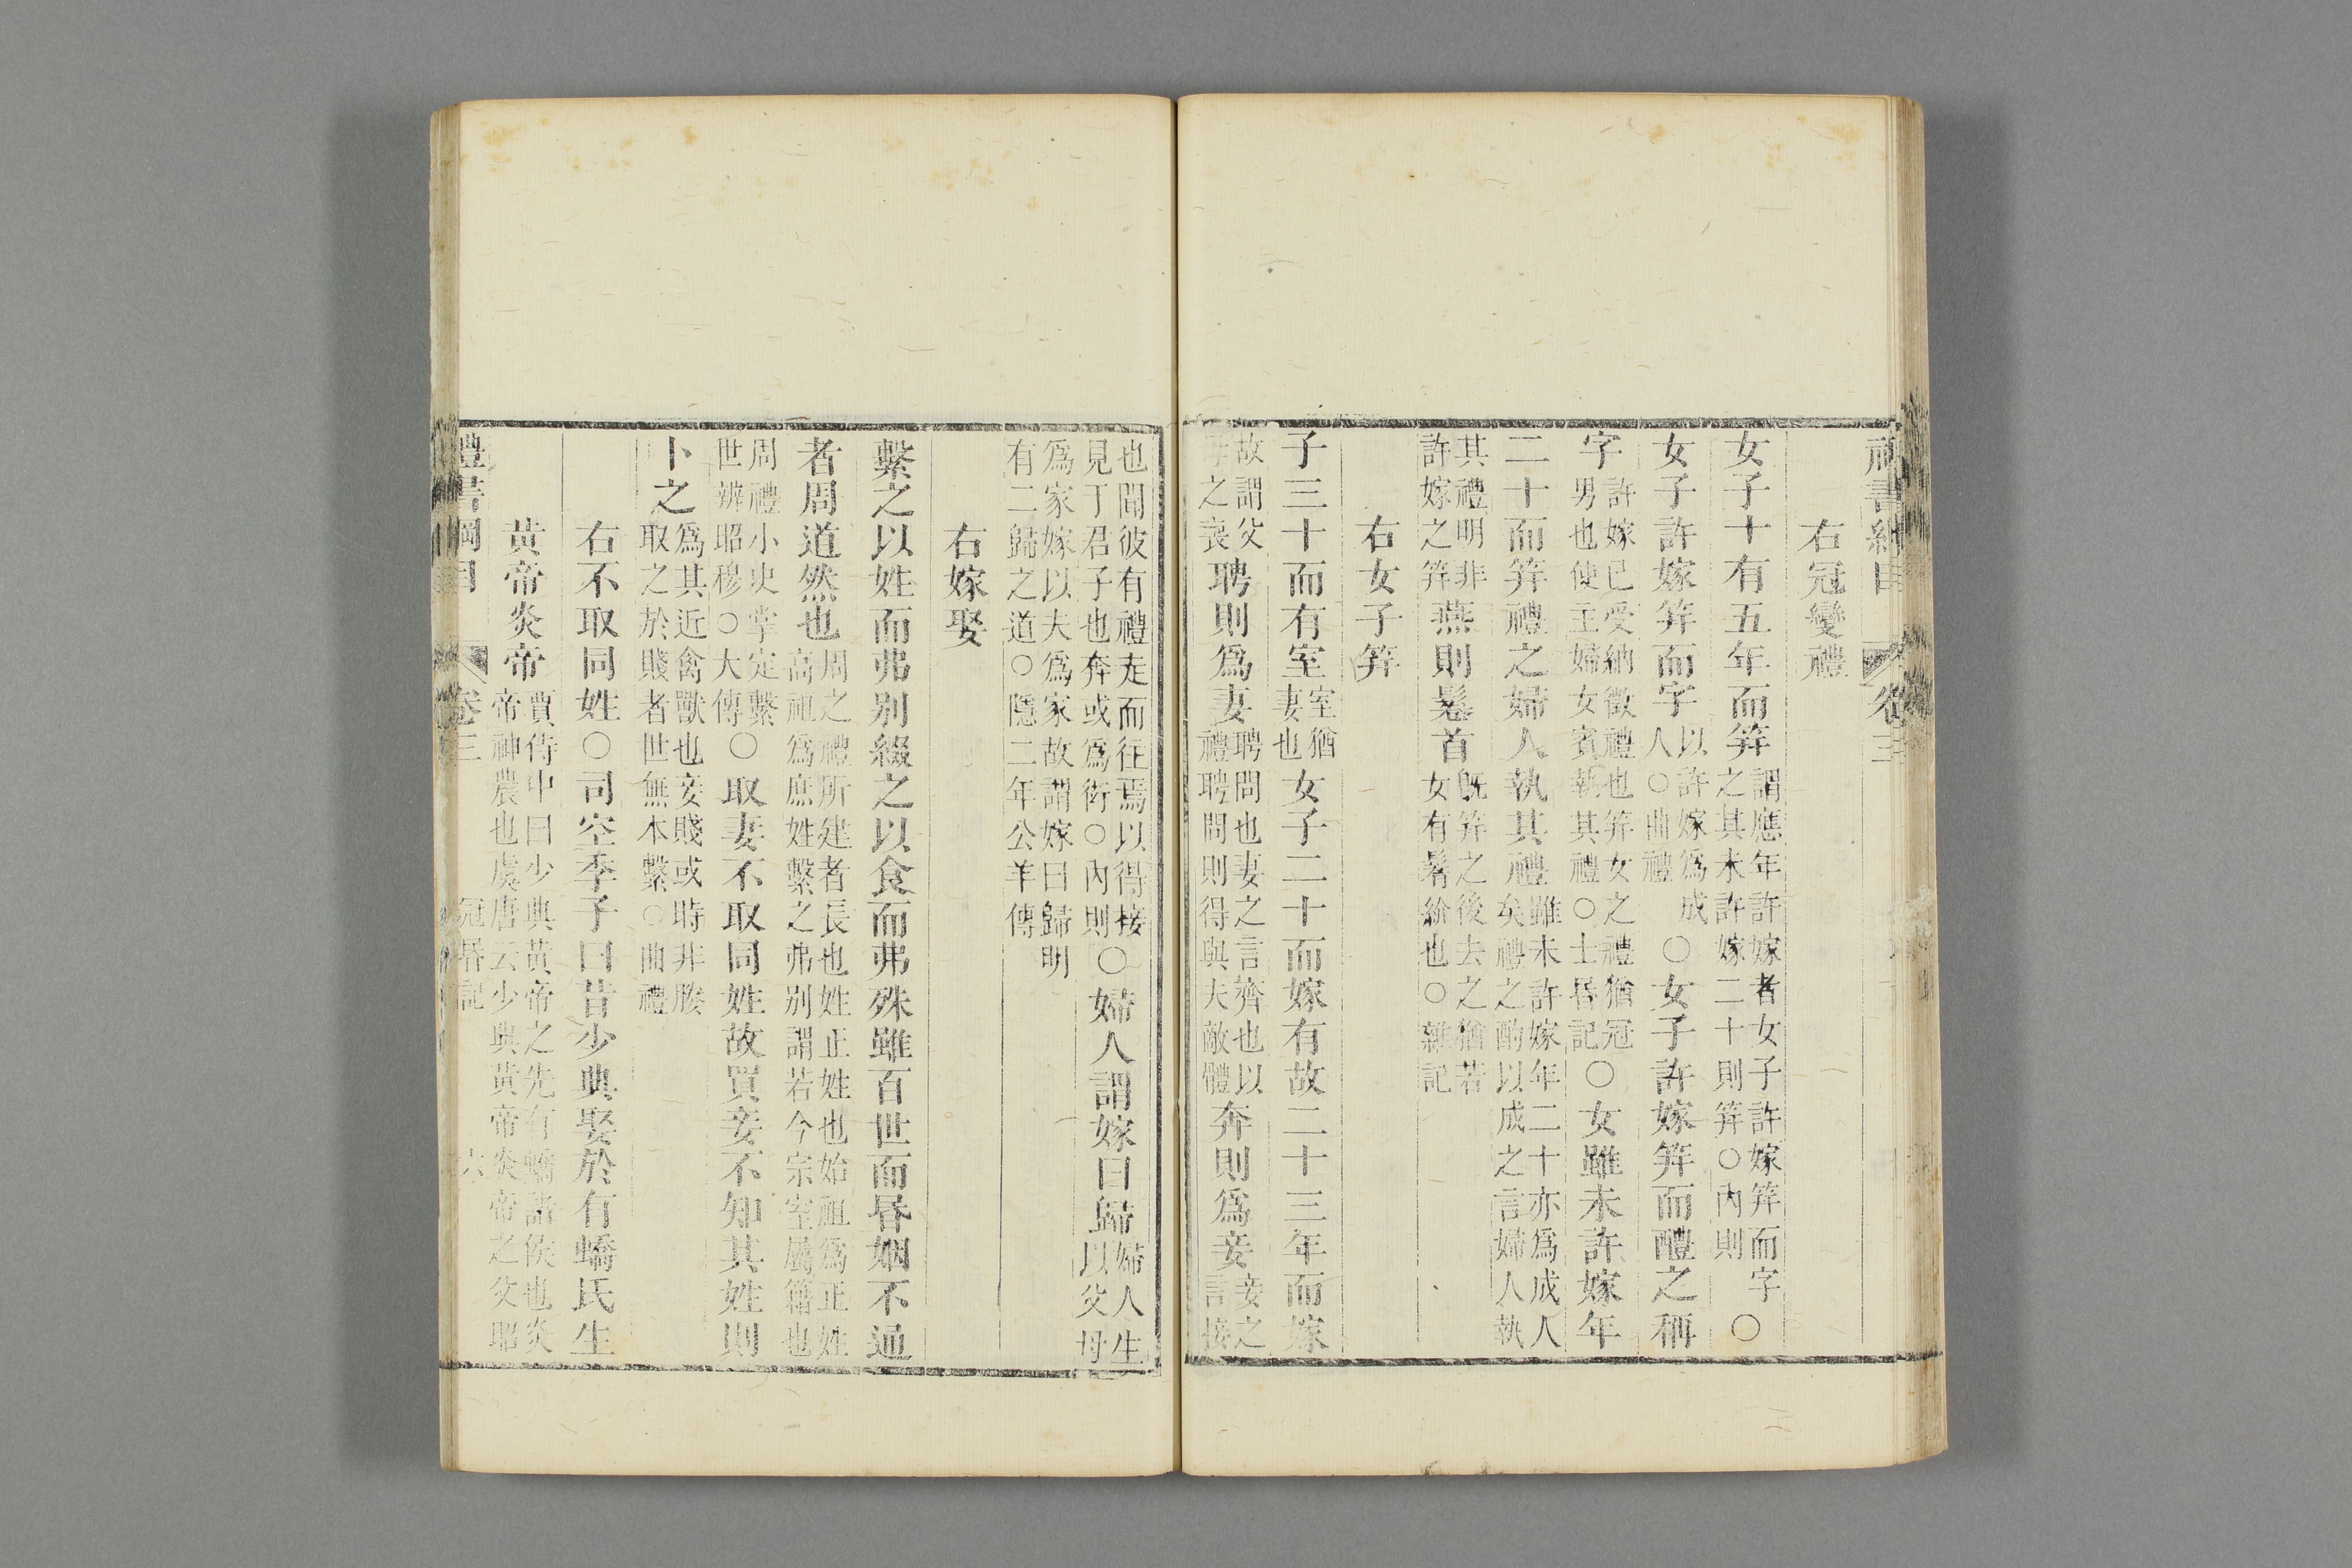 禮書綱目　卷三
右冠變禮
女子十有五年而筓謂應年許嫁者女子許嫁筓而字之其未許嫁二十則筓○內則○
女子許嫁筓而字以許嫁爲成人○曲禮○女子許嫁筓而醴之稱
字許嫁已受納徵禮也筓女之禮猶冠男也使主婦女賓執其禮○士昏記○女雖未許嫁年
二十而筓禮之婦人執其禮雖未許嫁年二十亦爲成人矣禮之酌以成之言婦人執
其禮明非許嫁之筓燕則鬈首旣筓之後去之猶若女有鬌紒也○雜記
右女子筓
子三十而有室室猶妻也女子二十而嫁有故二十三年而嫁
故謂父母之喪聘則爲妻聘問也妻之言齊也以禮聘問則得與夫敵體奔則爲妾妾之言接
也聞彼有禮走而往焉以得接見丁君子也奔或爲衒○內則○婦人謂嫁曰歸婦人生以父母
爲家嫁以夫爲家故謂嫁曰歸明有二歸之道○隱二年公羊傳
右嫁娶
繫之以姓而弗別綴之以食而弗殊雖百世而昏姻不通
者周道然也周之禮所建者長也姓正姓也始祖爲正姓高祖爲庶姓繫之弗別謂若今宗室屬籍也
周禮小史掌定繫世辨昭穆○大傳○取妻不取同姓故買妾不知其姓則
卜之爲其近禽獸也妾賤或時非媵取之於賤者世無本繫○曲禮
右不取同姓○司空季子曰昔少典娶於有蟜氏生
黃帝炎帝賈侍中曰少典黃帝之先有蟜諸侯也炎帝神農也虞唐云少典黃帝炎帝之父昭
禮書綱目　卷三　冠昏記　六